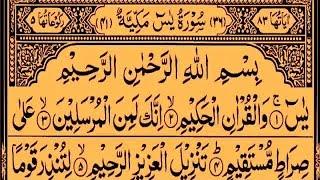 اٰيَاتُهَا ٨٣ (٣٦) سُوْرَةُ يٰسٓ مَكِّيَّةٌ (٤١) رُكُوْعَاتُهَا ٥
بِسْمِ اللهِ الرَّحْمٰنِ الرَّحِيْمِ
يٰسٓ ۚ ﴿١﴾ وَالْقُرْاٰنِ الْحَكِيْمِ ﴿٢﴾ اِنَّكَ لَمِنَ الْمُرْسَلِيْنَ ﴿٣﴾ عَلٰى
صِرَاطٍ مُّسْتَقِيْمٍ ؕ ﴿٤﴾ تَنْزِيْلَ الْعَزِيْزِ الرَّحِيْمِ ﴿٥﴾ لِتُنْذِرَ قَوْمًا